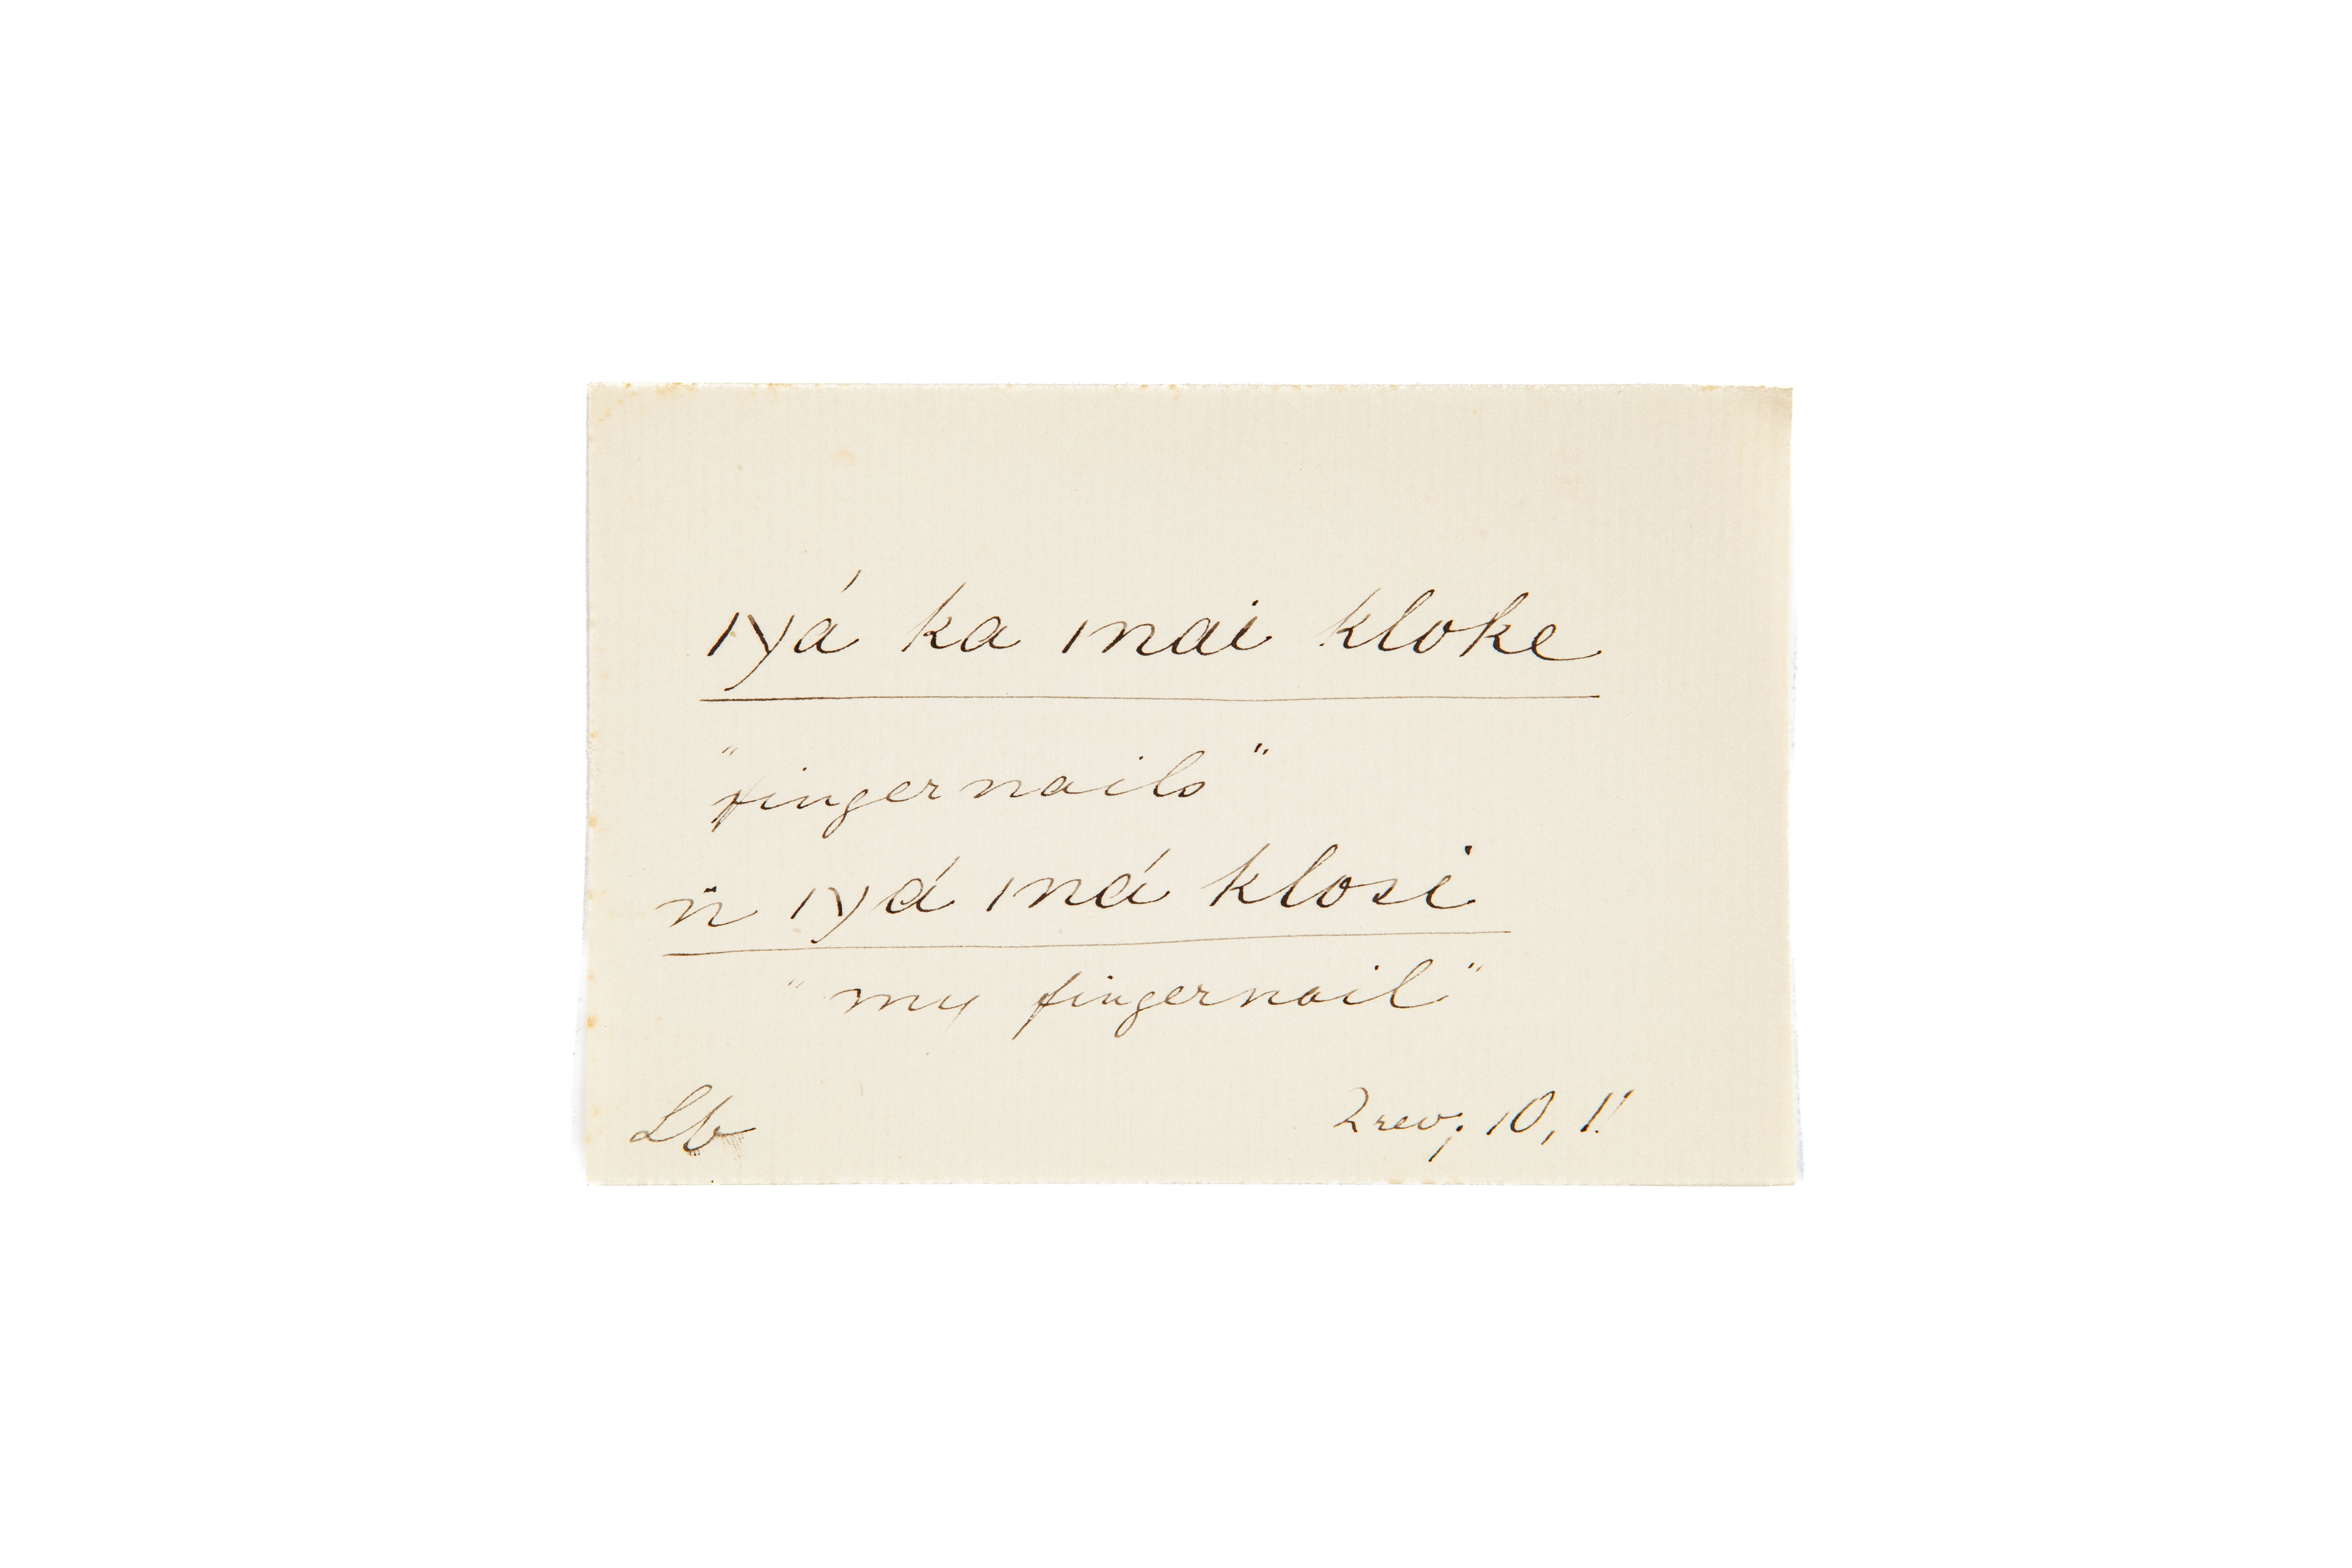 ıyá ka ınai kloke
"fingernails"
n̈ ıyá ıná klosi
"my fingernail"
Lb 2 rev; 10, 11.